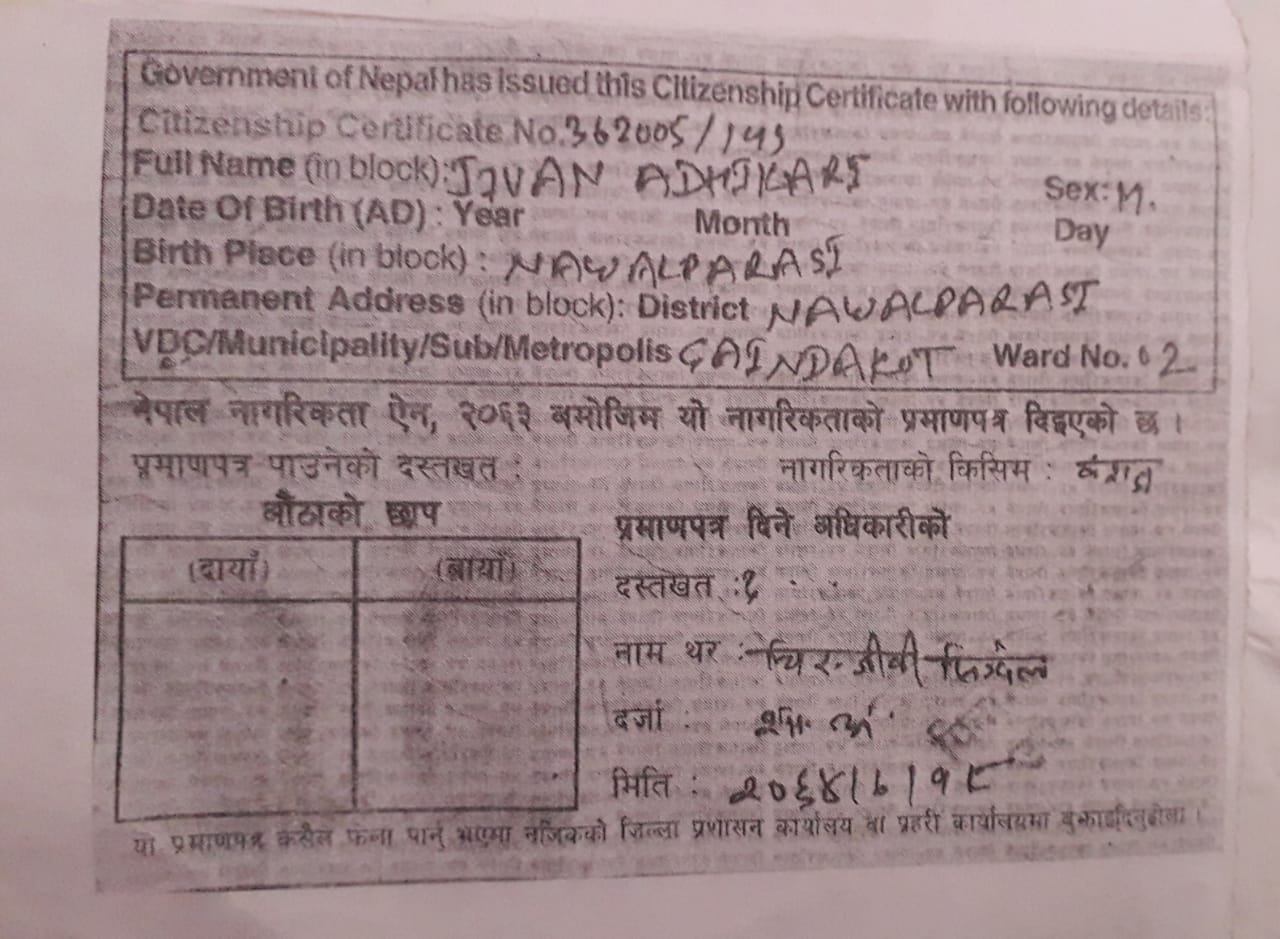 Government of Nepal has issued this Citizenship Certificate with following details:
Citizenship Certificate No. 362005/143
Full Name (in block): JIVAN ADHIKARI Sex: M.
Date Of Birth (AD) : Year Month Day
Birth Place (in block) : NAWALPARASI
Permanent Address (in block): District NAWALPARASI
VDC/Municipality/Sub/Metropolis GAINDAKOT Ward No. 02
नेपाल नागरिकता ऐन, २०६३ बमोजिम यो नागरिकताको प्रमाणपत्र दिइएको छ ।
प्रमाणपत्र पाउनेको दस्तखत : नागरिकताको किसिम : वंशज
औंठाको छाप
(दायाँ) (बायाँ)
प्रमाणपत्र दिने अधिकारीको
दस्तखत :
नाम थर : चिरञ्जीवी
दर्जा :
मिति : २०६४/६/१८
यो प्रमाणपत्र कसैले फेला पार्नु भएमा नजिकको जिल्ला प्रशासन कार्यालय वा प्रहरी कार्यालयमा बुझाइदिनुहोला ।